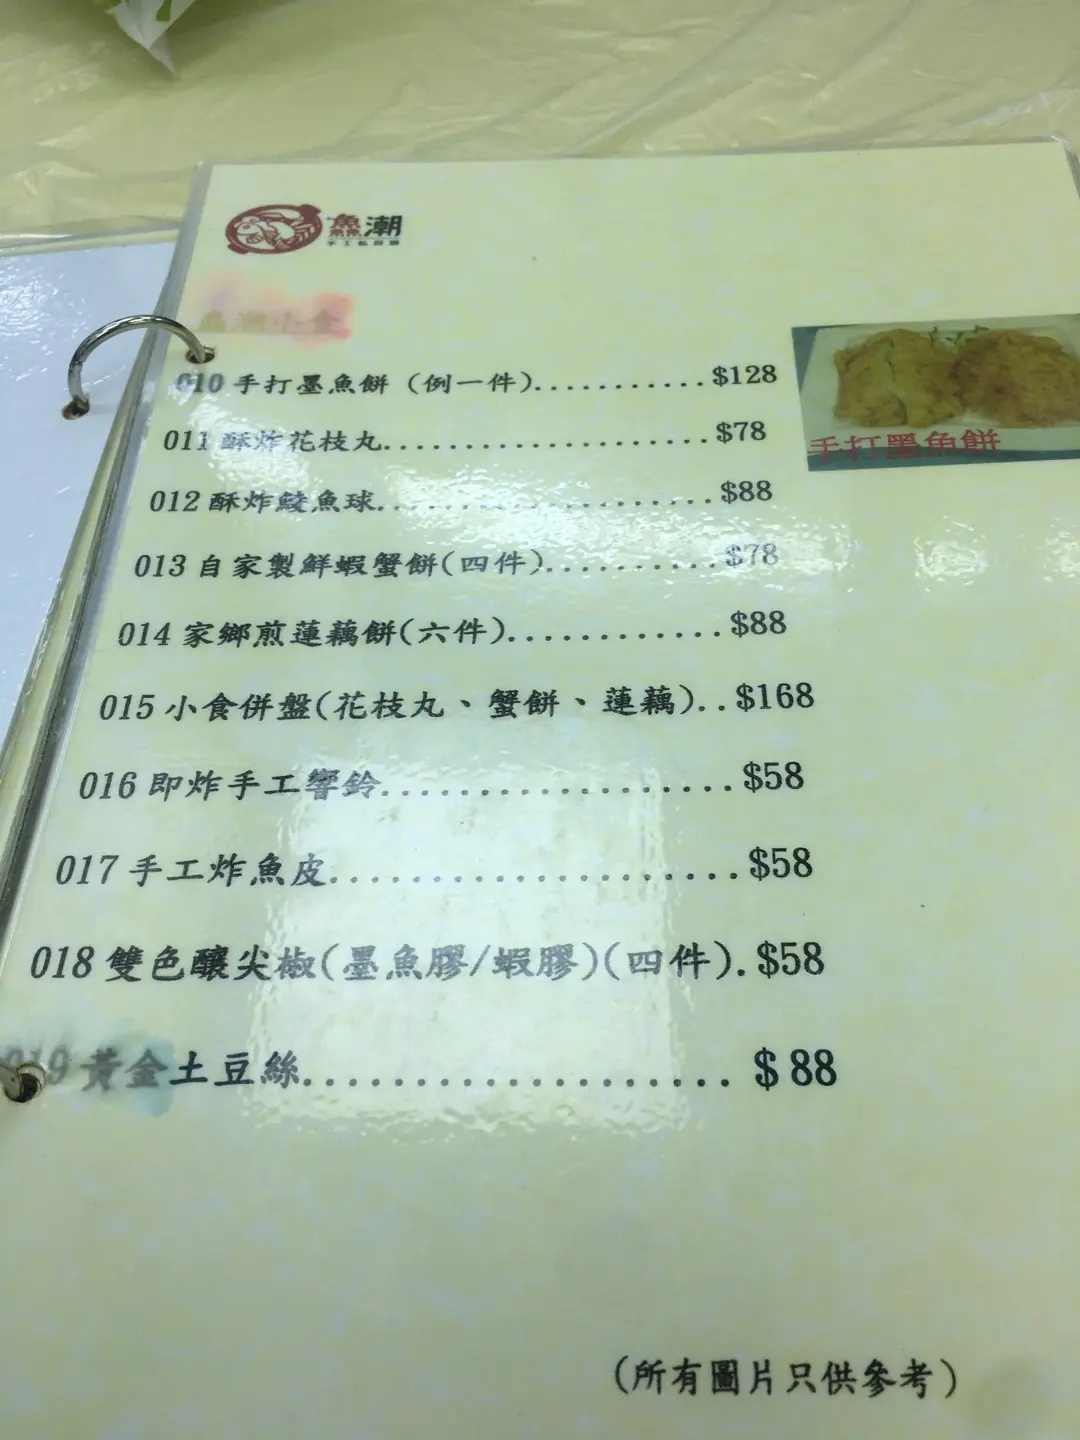 鱻潮
手工私房菜
鱻潮小食
010 手打墨魚餅（例一件）...........$128
011 酥炸花枝丸.....................$78
012 酥炸鯪魚球.....................$88
013 自家製鮮蝦蟹餅(四件)...........$78
014 家鄉煎蓮藕餅(六件).............$88
015 小食併盤(花枝丸、蟹餅、蓮藕)..$168
016 即炸手工響鈴...................$58
017 手工炸魚皮.....................$58
018 雙色釀尖椒(墨魚膠/蝦膠)(四件).$58
019 黃金土豆絲..................... $ 88
手打墨魚餅
(所有圖片只供參考)